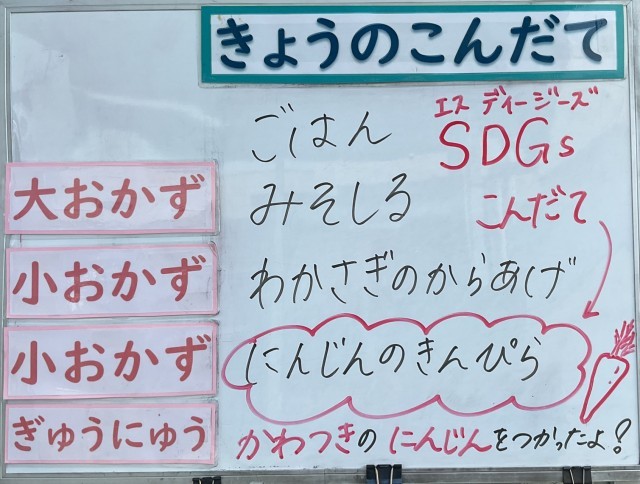 きょうのこんだて
ごはん
エス ディージーズ
SDGs
大おかず
みそしる
こんだて
小おかず
わかさぎのからあげ
小おかず
にんじんのきんぴら
ぎゅうにゅう
かわつきの にんじんをつかったよ!